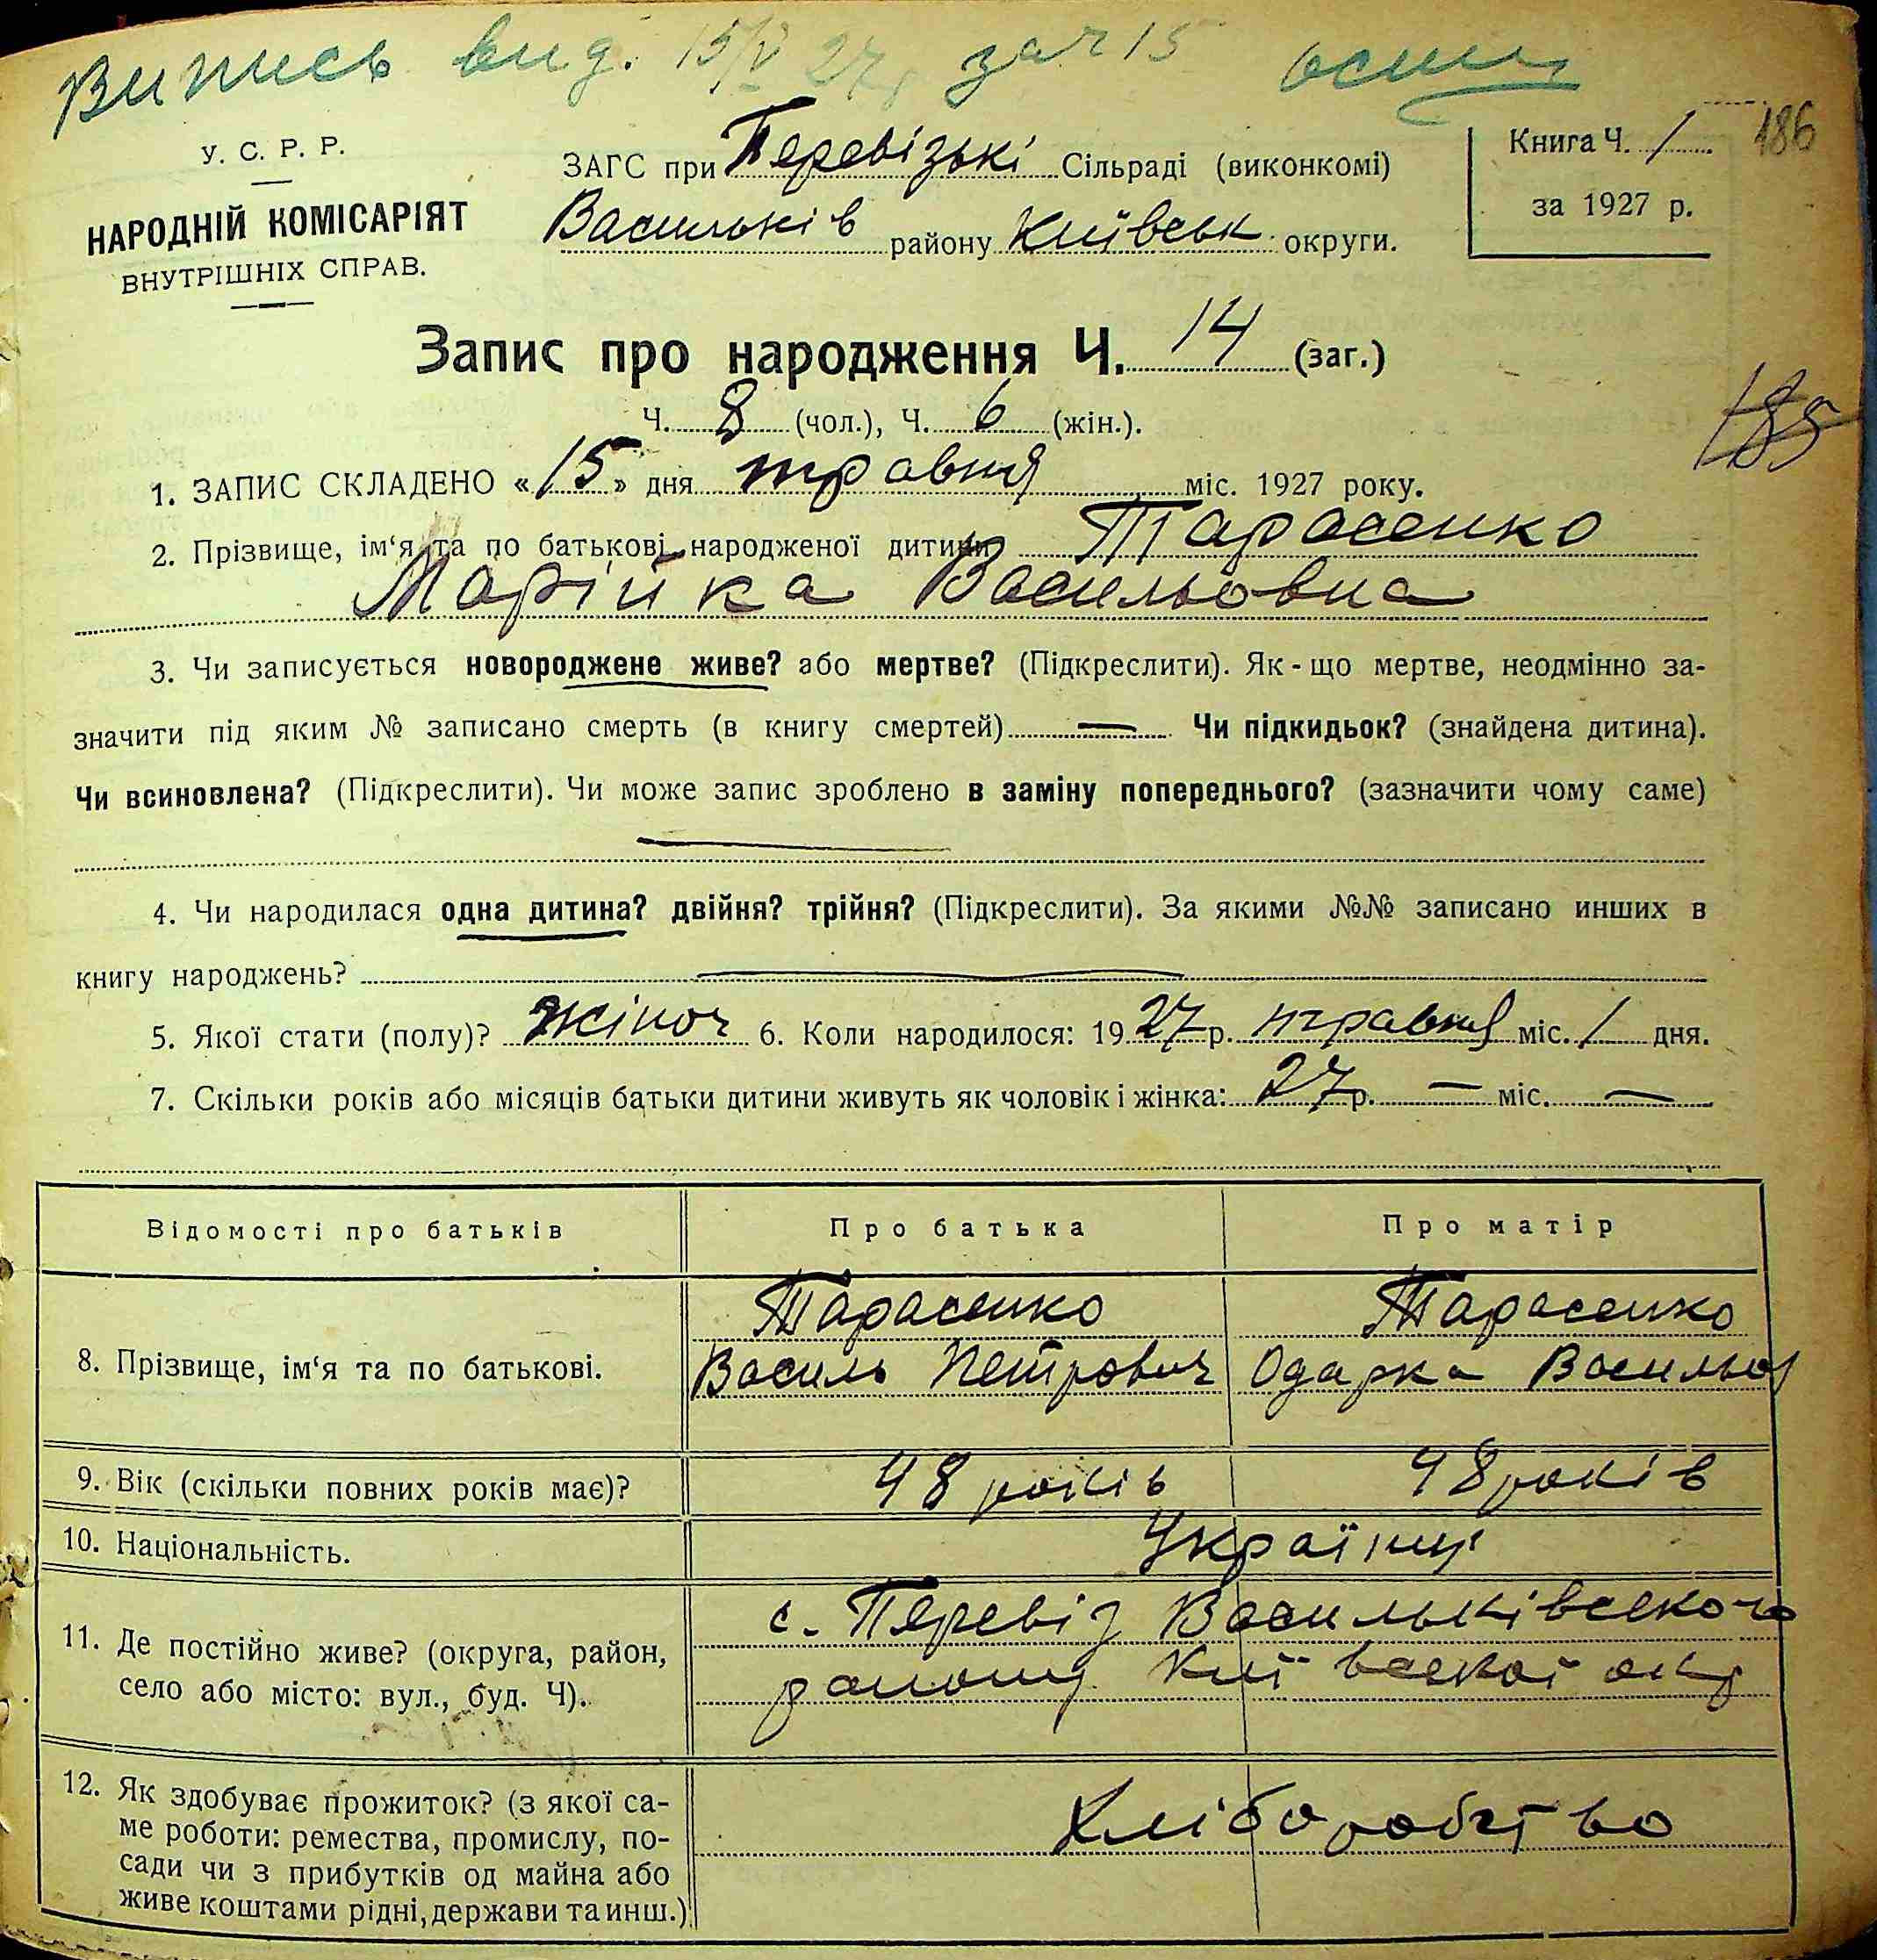 Випись вид. 15/V 27 р зач 15
186
У. С. Р. Р.
НАРОДНІЙ КОМІСАРІЯТ
ВНУТРІШНІХ СПРАВ.
ЗАГС при Перевізькі Сільраді (виконкомі)
Васильків району Київськ округи.
Книга Ч. 1
за 1927 р.
Запис про народження Ч. 14 (заг.)
Ч. 8 (чол.), Ч. 6 (жін.).
185
1. ЗАПИС СКЛАДЕНО «15» дня травня міс. 1927 року.
2. Прізвище, ім‘я та по батькові народженої дитини Тарасенко
Марійка Васильовна
3. Чи записується новороджене живе? або мертве? (Підкреслити). Як-що мертве, неодмінно за-
значити під яким № записано смерть (в книгу смертей) — Чи підкидьок? (знайдена дитина).
Чи всиновлена? (Підкреслити). Чи може запис зроблено в заміну попереднього? (зазначити чому саме)
—
4. Чи народилася одна дитина? двійня? трійня? (Підкреслити). За якими №№ записано инших в
книгу народжень? —
5. Якої стати (полу)? жіноч 6. Коли народилося: 1927 р. травня міс. 1 дня.
7. Скільки років або місяців батьки дитини живуть як чоловік і жінка: 27 р. — міс. —
Відомості про батьків Про батька Про матір
8. Прізвище, ім‘я та по батькові.
Тарасенко Тарасенко
Василь Петрович Одарка Васильов
9. Вік (скільки повних років має)? 48 років 48 років
10. Національність. Українці
11. Де постійно живе? (округа, район,
село або місто: вул., буд. Ч).
с. Перевіз Васильківського
району Київської окр
12. Як здобуває прожиток? (з якої са-
ме роботи: ремества, промислу, по-
сади чи з прибутків од майна або
живе коштами рідні, держави та инш.)
Хліборобство